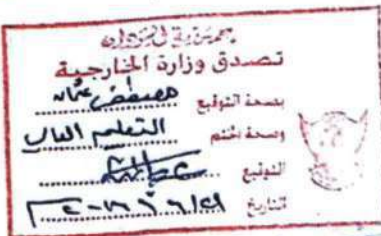 جمهورية السودان
تصدق وزارة الخارجية
بصحة التوقيع مصطفى عثمان
وصحة الختم التعليم العالي
التوقيع
التاريخ